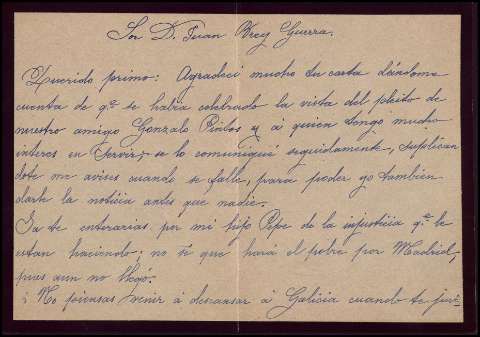 Sor D. Juan Rey Guerra.
Querido primo: Agradecí mucho tu carta dándome
cuenta de q.e se había celebrado la vista del pleito de
nuestro amigo Gonzalo Pintos y á quien tengo mucho
interes en servir; se lo comuniqué seguidamente, suplican
dote me avises cuando se falle, para poder yo tambien
darle la noticia antes que nadie.
Ya te enterarias por mi hijo Pepe de la injusticia q.e le
estan haciendo; no sé que hará el pobre por Madrid,
pues aun no llegó.
¿ No piensas venir á descansar á Galicia cuando te jubi